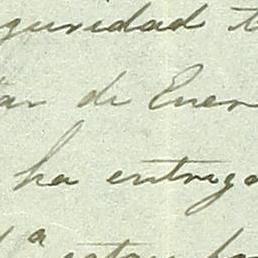 guridad t
ar de Ener
ha entrega
a estan